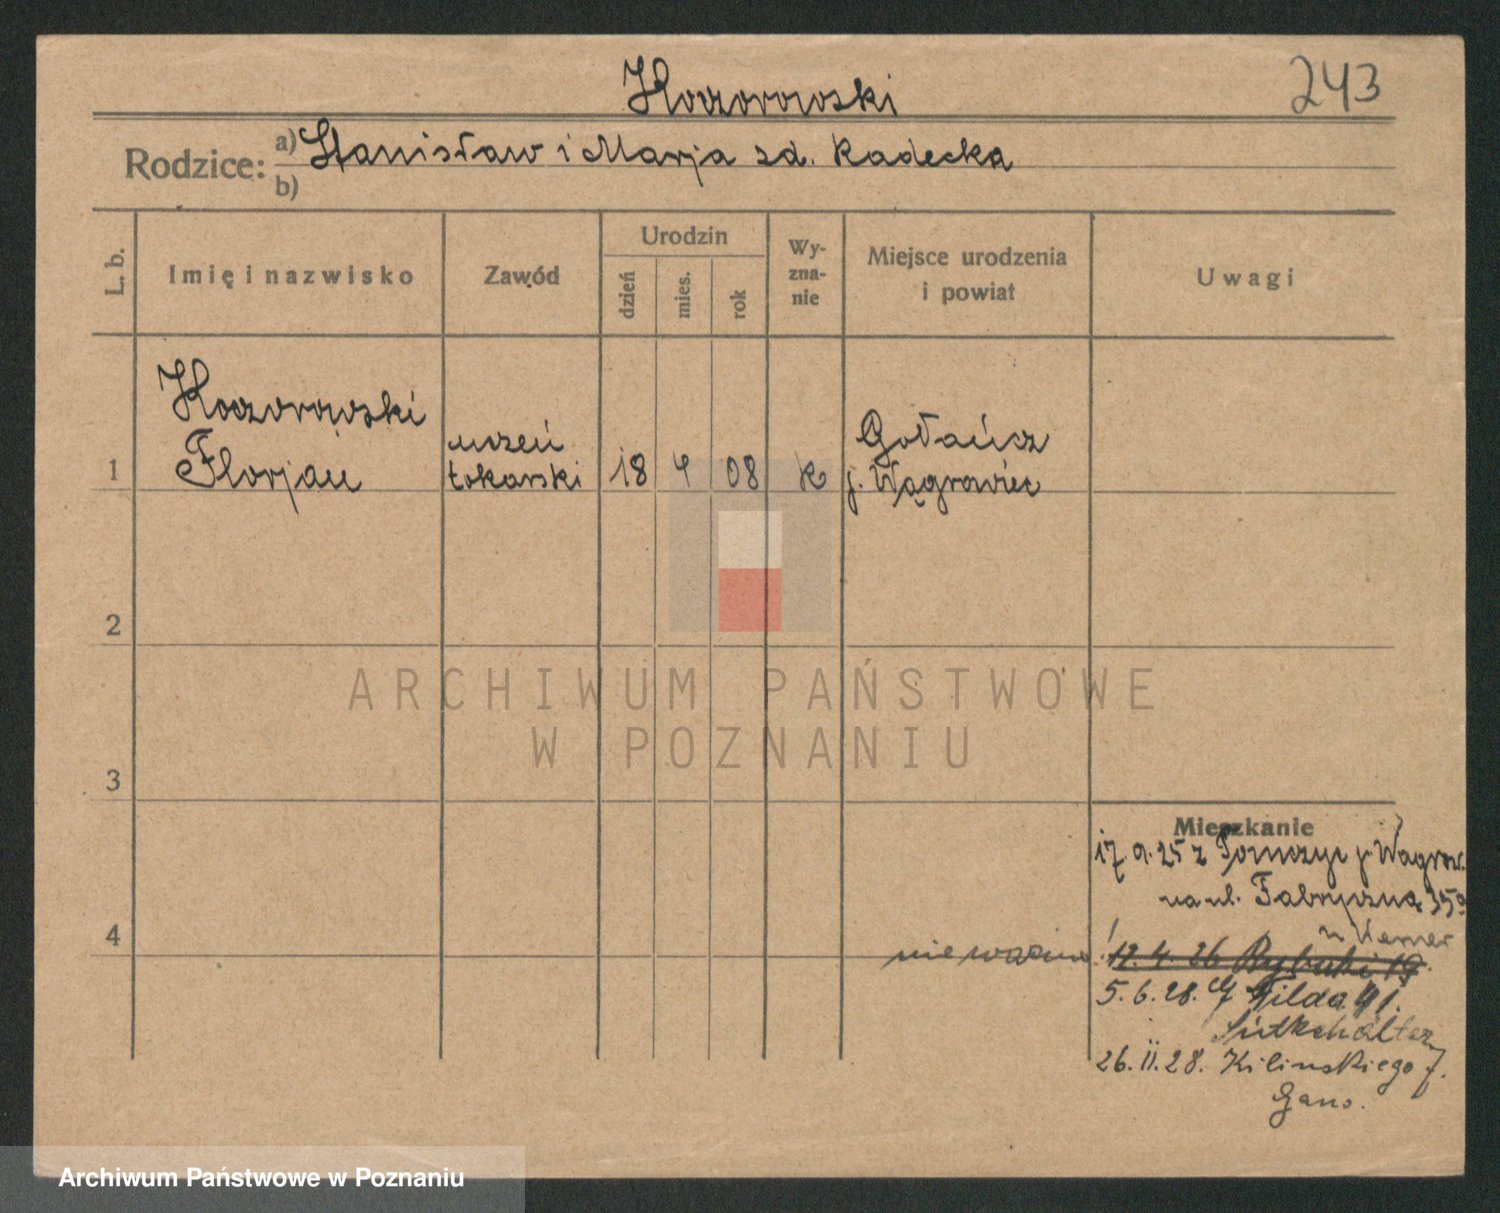 Koczorowski
243
Rodzice:
a) Stanisław i Marja zd. Radecka
b)
L. b.
Imię i nazwisko
Zawód
Urodzin
dzień
mies.
rok
Wy-
zna-
nie
Miejsce urodzenia
i powiat
Uwagi
Koczorowski
Florjan
uczeń
tokarski
1
18
4
08
k
Gołańcz
p. Wągrowiec
2
ARCHIWUM PAŃSTWOWE
W POZNANIU
3
Mieszkanie
17. 9. 25 z p. Wągrow.
na ul. Fabryczną 35a
4
nieważne!
12. 4. 26 Rybaki 19.
5. 6. 28. Wilda 41.
26. II. 28. Kilinskiego 7.
Archiwum Państwowe w Poznaniu